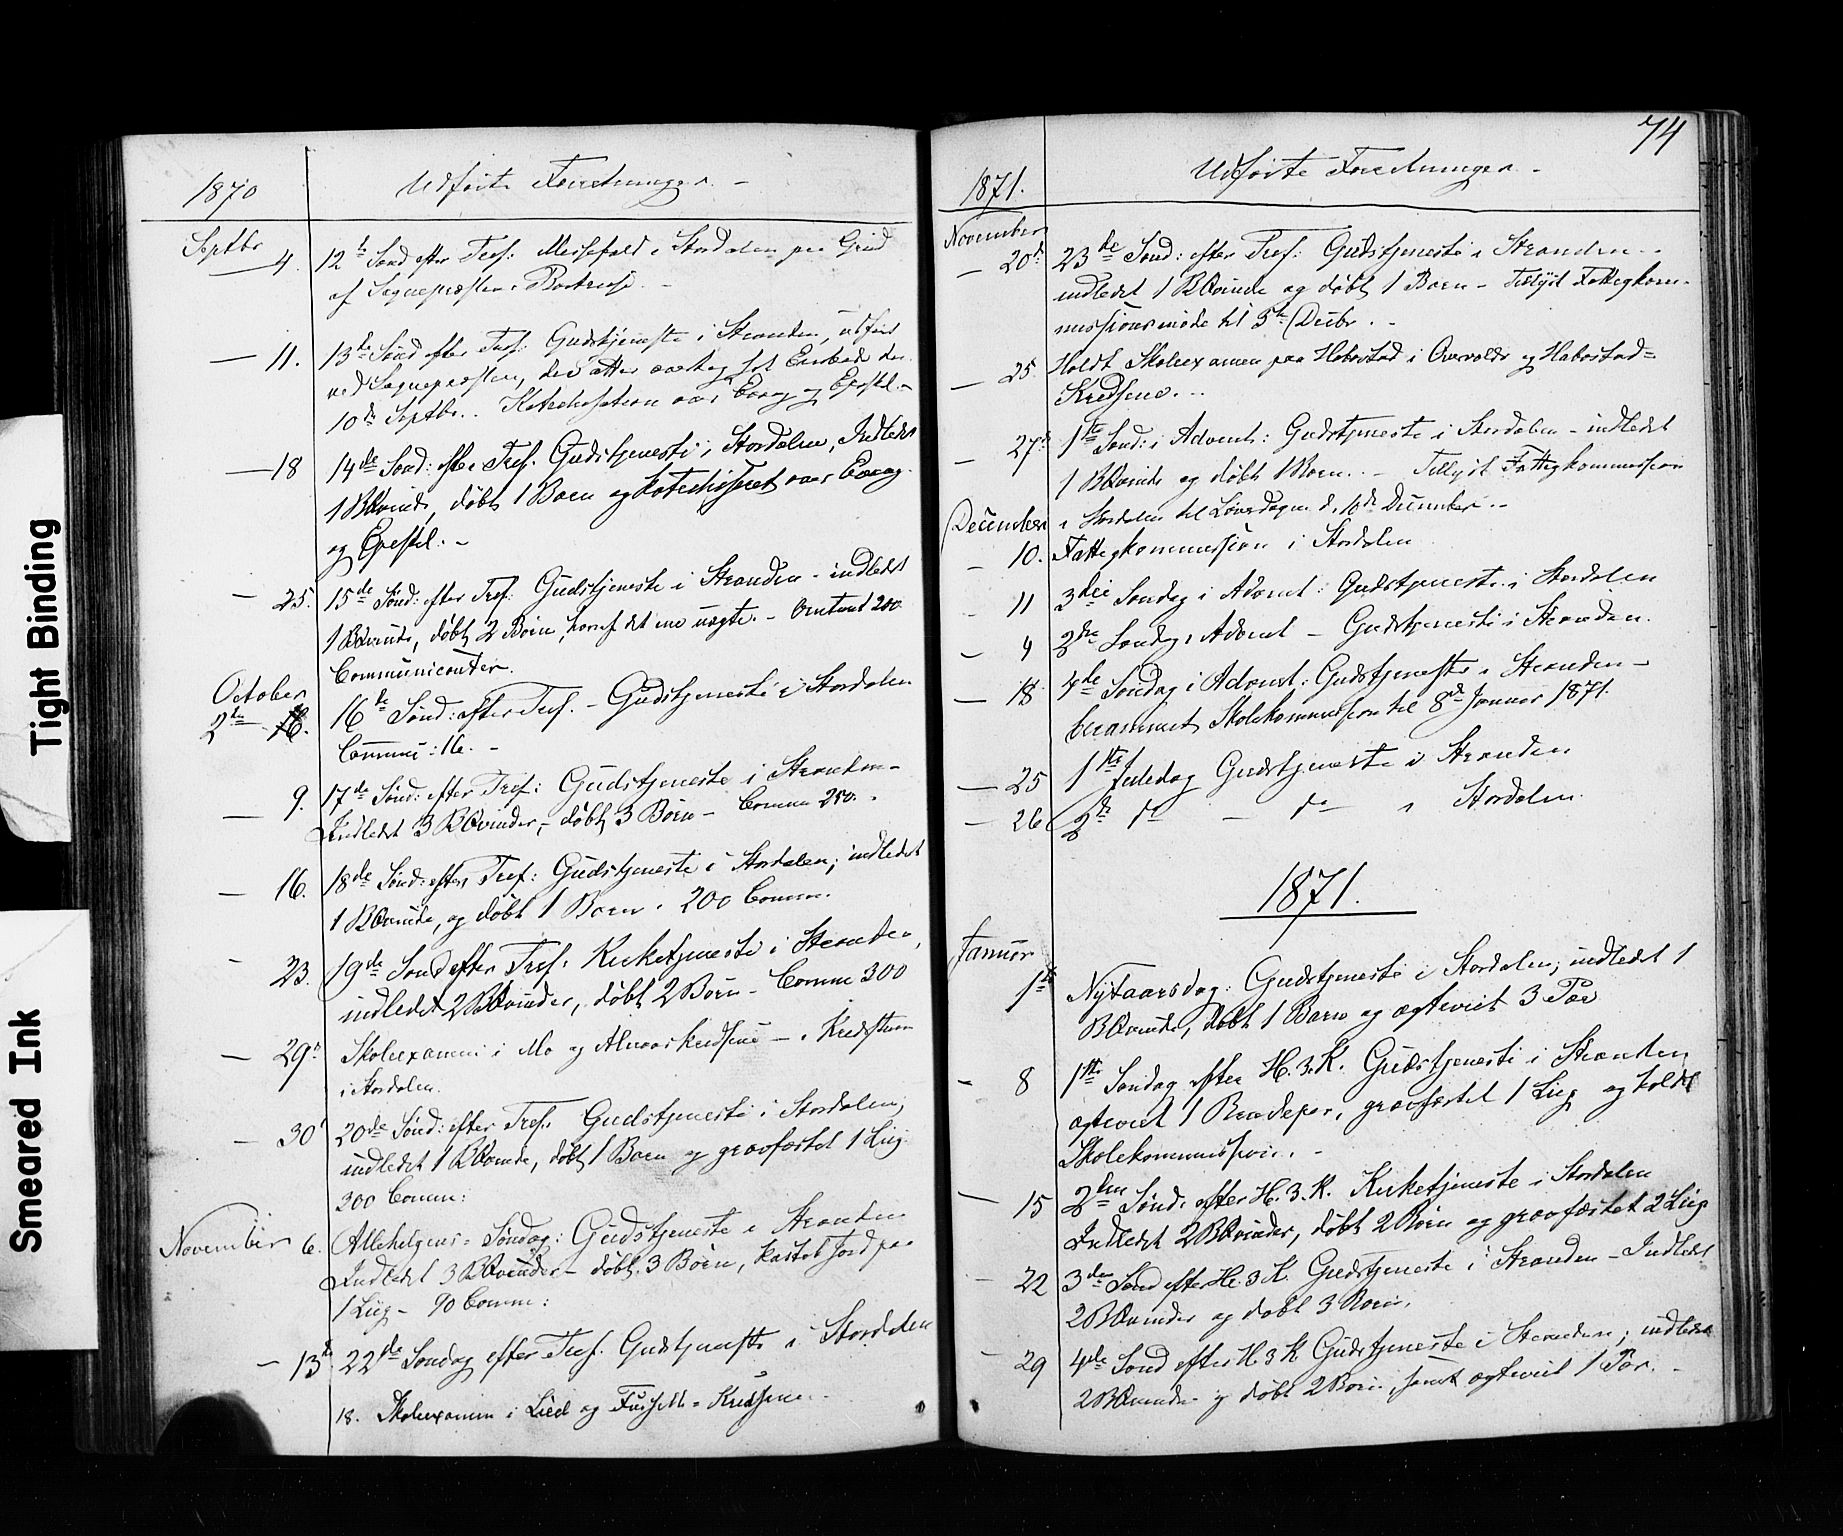 Tight Binding
Smeared Ink
1870
Udførte Forretninger. -
Septbr
4. 12te Sønd efter Tref: Messefald i Stordalen
af Sognepræsten -
11. 13de Sønd efter Tref: Gudstjeneste i Stranden, udført
ved Sognepræsten, der atter Embede den
10de Septbr. Katechisation over Evang og Epistel. -
18 14de Sønd: efter Tref. Gudstjeneste i Stordalen, Indledet
1 BKvinde, døbt 1 Barn og Katechiseret over Evang.
og Epistel. -
25. 15de Sønd: efter Tref: Gudstjeneste i Stranden - indledet
1 BKvinde, døbt 2 Børn, hvoraf det ene uægte. - Omtrent 200
Communicanter.
October
2den 16te Sønd: efter Tref. - Gudstjeneste i Stordalen
Commu: 16. -
9. 17de Sønd: efter Tref: Gudstjeneste i Stranden -
Indledet 3 BKvinder, - døbt 3 Børn - Commu 250. -
16. 18de Sønd: efter Tref: Gudstjeneste i Stordalen; indledet
1 BKvinde, og døbt 1 Barn. 200 Commu.
23. 19de Sønd efter Tref. Kirketjeneste i Stranden,
indledet 2 BKvinder, døbt 2 Børn - Commu 300
29de Skoleexamen i Mo og Almaaskredsene -
i Stordalen.
30' 20de Sønd: efter Tref. Gudstjeneste i Stordalen;
indledet 1 BKvinde, døbt 1 Barn og gravfæstet 1 Liig.
200 Commu:
November 6. Allehelgens-Søndag: Gudstjeneste i Stranden
Indledet 3 BKvinder - døbt 3 Børn, kastet Jord paa
1 Liig - 90 Commu:
13de 22de Søndag efter Tref. Gudstjeneste i Stordalen
18. Skoleexamen i Lied og Kredsene. -
74
1871.
Udførte Forretninger -
November
20de 23de Sønd: efter Tref: Gudstjeneste i Stranden -
indledet 1 BKvinde og døbt 1 Barn - Tillyst Fattigkom-
missionsmøde til 5te Decbr. -
25. Holdt Skoleexamen paa Habostad i Overvolds og Habostad-
Kredsene. -
27de 1te Sønd: i Advent: Gudstjeneste i Stordalen - indledet
1 BKvinde og døbt 1 Barn. - Tillyst Fattigkommission
December i Stordalen til Løverdagen d. 10de December. -
10. Fattigkommission i Stordalen
11 3die Søndag i Advent: Gudstjeneste i Stordalen
4 2den Søndag i Advent - Gudstjeneste i Stranden.
18 4de Søndag i Advent: Gudstjeneste i Stranden -
berammet Skolekommission til 8de Januar 1871.
25 1ste Juledag Gudstjeneste i Stranden
26 2de do - do i Stordalen.
1871.
Januar
1ste Nytaarsdag: Gudstjeneste i Stordalen; indledet 1
BKvinde, døbt 1 Barn og ægteviet 3 Par
8 1ste Søndag efter H. 3. K. Gudstjeneste i Stranden
ægteviet 1 Brudepar, gravfæstet 1 Liig og holdt
Skolekommission. -
15 2den Sønd. efter H. 3. K. Kirketjeneste i Stordalen
Indledet 2 BKvinder, døbt 2 Børn og gravfæstet 2 Liig
22 3die Sønd efter H. 3 K. Gudstjeneste i Stranden - Indledet
2 BKvinder og døbt 3 Børn.
29 4de Sønd efter H 3 K Gudstjeneste i Stranden; indledet
2 BKvinder og døbt 2 Børn, samt ægteviet 1 Par. -